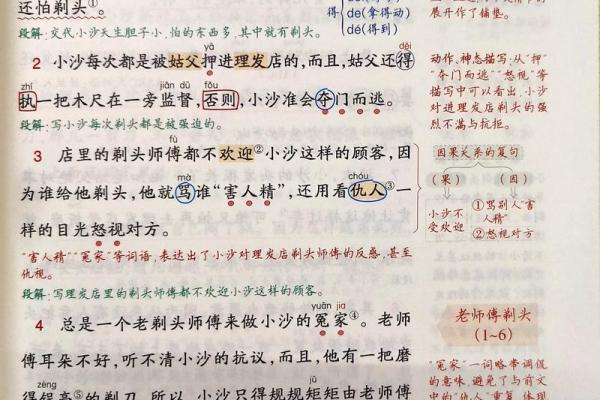 还怕剃头①。
得 dé(拿得动)
dé(得到)
展开作了铺垫。
段解:交代小沙天生胆子小,怕的东西多,其中就有剃头。
yā děi
2 小沙每次都是被姑父押进理发店的,而且,姑父还得
zhí jiān dū fǒu
执一把木尺在一旁监督,否则,小沙准会夺门而逃。
段解:写小沙每次剃头都是被强迫的。
动作、神态描写:从“押”
“夺门而逃”“怒视”等
描写中可以看出,小沙
对进理发店剃头的强
烈不满与抗拒。
fù
3 店里的剃头师傅都不欢迎②小沙这样的顾客,因
mà chóu
为谁给他剃头,他就骂谁“害人精”,还用看仇人③一
样的目光怒视对方。
“害人精”“冤家”等词语,表达出了小沙对理发店剃头师傅的反感,甚至
仇视。
段解:写理发店里的剃头师傅都不欢迎小沙这样的顾客。
因果关系的复句
(果) (因)
小沙不
受欢迎
①骂别人“害
人精”
②怒视对方
yuān jia
4 总是一个老剃头师傅来做小沙的冤家④。老师
傅耳朵不好,听不清小沙的抗议,而且,他有一把磨
zèng jǔ
得锃亮⑤的剃刀。所以,小沙只得规规矩矩由老师傅
老师傅剃头
(1~6)
“冤家”一词略带调侃
的意味,避免了与前文
中的“仇人”重复,体现